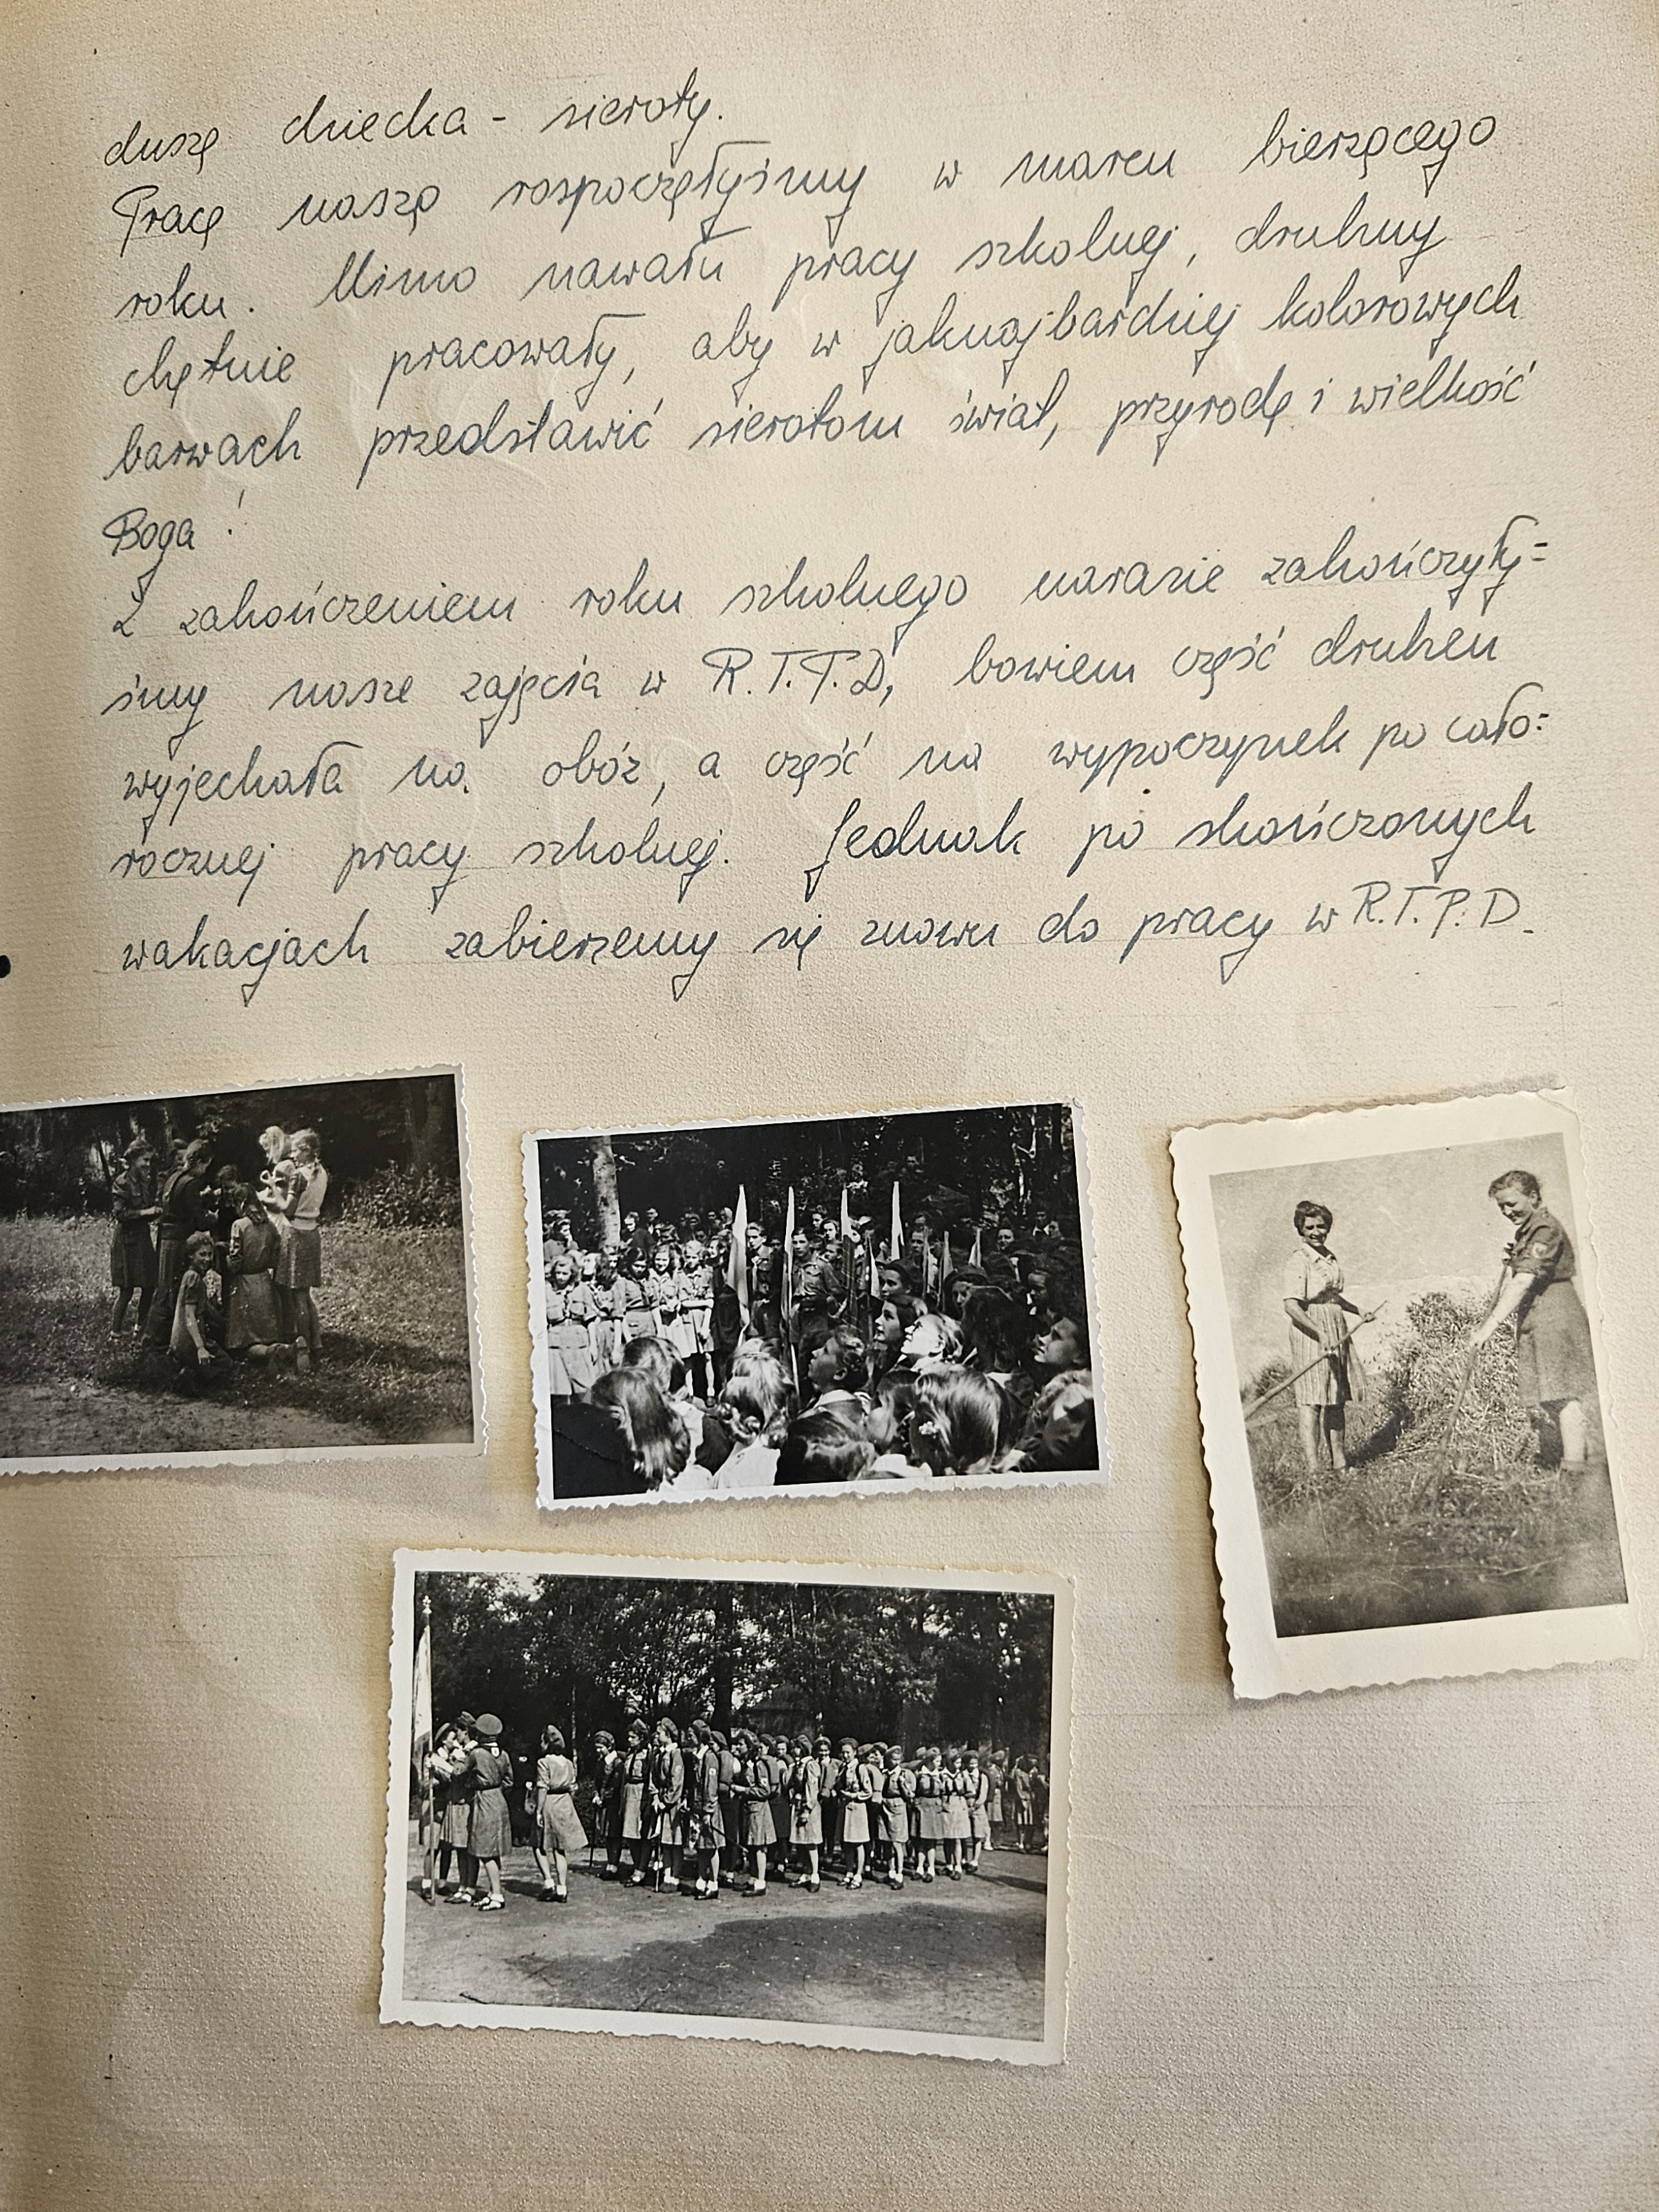 duszę dziecka - sieroty.
Pracę naszą rozpoczęłyśmy w marcu bierzącego
roku. Mimo nawału pracy szkolnej, druhny
chętnie pracowały, aby w jaknajbardziej kolorowych
barwach przedstawić sierotom świat, przyrodę i wielkość
Boga!
Z zakończeniem roku szkolnego narazie zakończyły=
śmy nasze zajęcia w R.T.P.D, bowiem część druhen
wyjechała na obóz, a część na wypoczynek po cało=
rocznej pracy szkolnej. Jednak po skończonych
wakacjach zabierzemy się znowu do pracy w R.T.P.D.